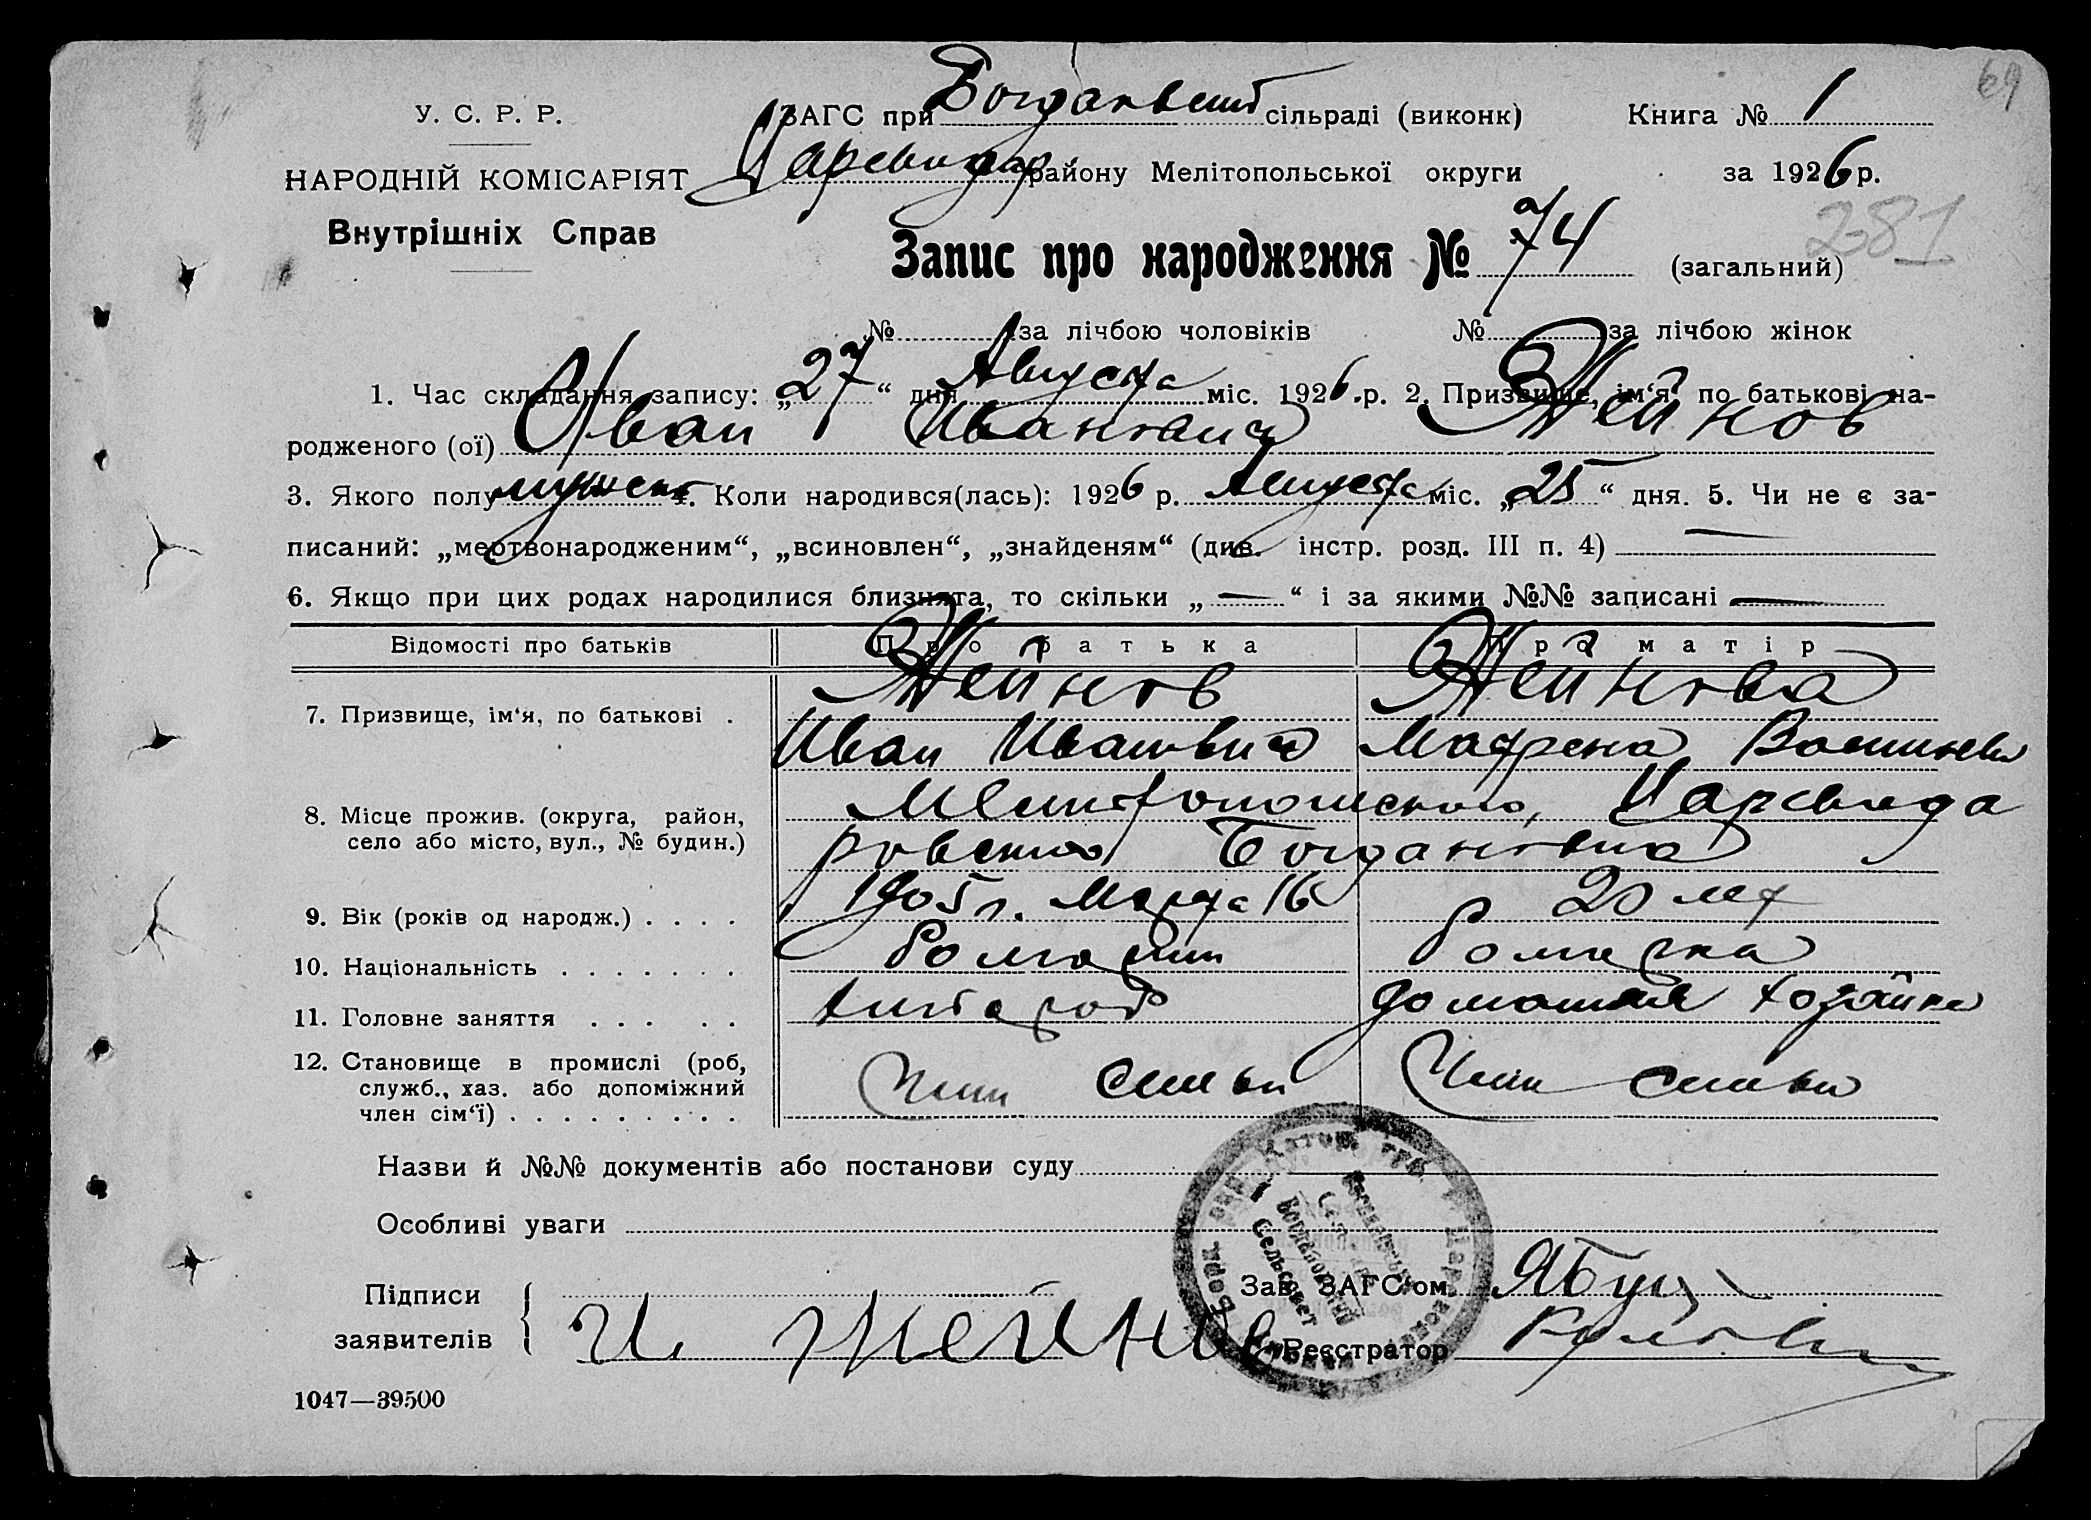 69
У. С. Р. Р.
ЗАГС при Богдановской сільраді (виконк) Книга № 1
НАРОДНІЙ КОМІСАРІЯТ
району Мелітопольської округи за 1926 р.
Внутрішніх Справ
281
Запис про народження № 74 (загальний)
№ за лічбою чоловіків № за лічбою жінок
1. Час складання запису: „27“ дня Августа міс. 1926 р. 2. Призвище, ім‘я, по батькові на-
родженого (ої) Иван Иванович Жейнов
3. Якого полу мужск 4. Коли народився(лась): 1926 р. Августа міс. „25“ дня. 5. Чи не є за-
писаний: „мертвонародженим“, „всиновлен“, „знайденям“ (див. інстр. розд. III п. 4) —
6. Якщо при цих родах народилися близнята, то скільки „—“ і за якими №№ записані —
Відомості про батьків Про батька Про матір
7. Призвище, ім‘я, по батькові . Жейнов Жейнова
Иван Иванович Матрена
8. Місце прожив. (округа, район, село або місто, вул., № будин.) Мелитопольского, Царевода
ровского Богдановка
9. Вік (років од народж.) . . . . 1905 г. Марта 16 20 лет
10. Національність . . . . . . . Болгарин Болгарка
11. Головне заняття . . . . . хлебороб домашняя хозяйка
12. Становище в промислі (роб, служб., хаз. або допоміжний член сім‘ї) . . . . . . . . . Член семьи Член семьи
Назви й №№ документів або постанови суду
Особливі уваги
Підписи заявителів И Жейнов
Зав. ЗАГС‘ом
Реєстратор
Богдановский
Сельсовет
1047—39500